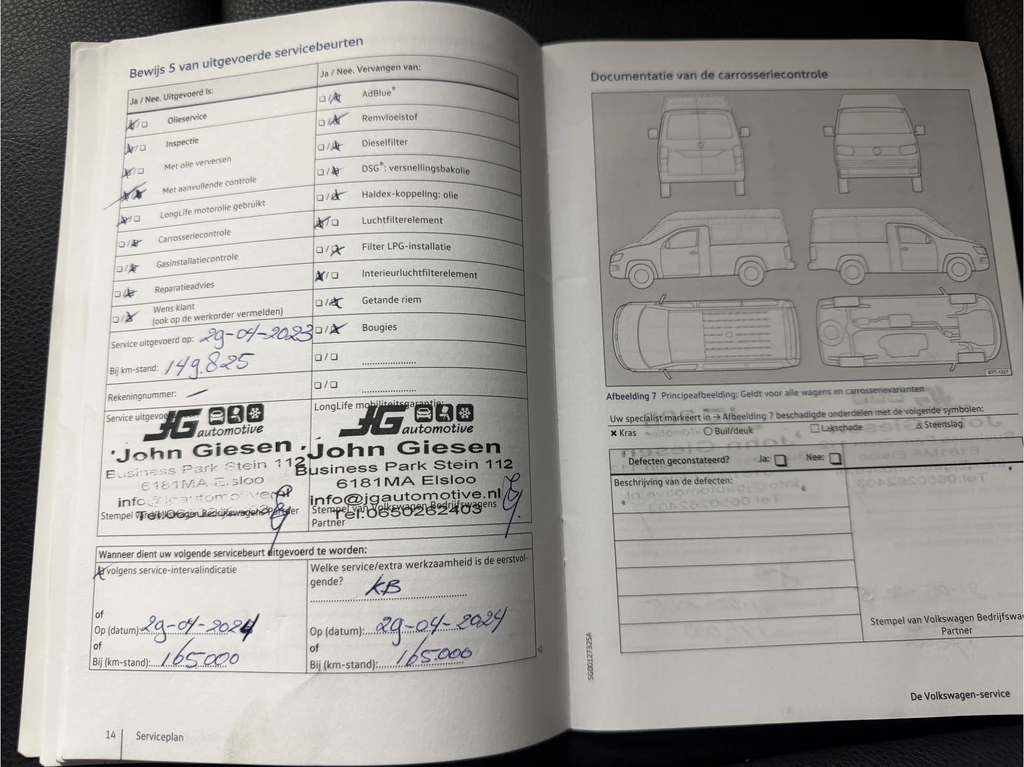 Bewijs 5 van uitgevoerde servicebeurten
Ja / Nee. Uitgevoerd is:
Olieservice
Inspectie
Met olie verversen
Met aanvullende controle
LongLife motorolie gebruikt
Carrosseriecontrole
Gasinstallatiecontrole
Reparatieadvies
Wens klant
(ook op de werkorder vermelden)
Service uitgevoerd op: 29-04-2023
Bij km-stand: 149.825
Rekeningnummer:
Ja / Nee. Vervangen van:
AdBlue®
Remvloeistof
Dieselfilter
DSG®: versnellingsbakolie
Haldex-koppeling: olie
Luchtfilterelement
Filter LPG-installatie
Interieurluchtfilterelement
Getande riem
Bougies
Service uitgevoe
JG
automotive
John Giesen
Business Park Stein 112
6181MA Elsloo
LongLife mobiliteitsgarantie:
JG
automotive
John Giesen
Business Park Stein 112
6181MA Elsloo
info@jgautomotive.nl
Stempel van Volkswagen Bedrijfswagens
Partner
Tel:0650262403
Wanneer dient uw volgende servicebeurt uitgevoerd te worden:
volgens service-intervalindicatie
of
Op (datum): 29-04-2024
of
Bij (km-stand): 165.000
Welke service/extra werkzaamheid is de eerstvol-
gende?
KB
Op (datum): 29-04-2024
of
Bij (km-stand): 165.000
14 Serviceplan
Documentatie van de carrosseriecontrole
B7T-1227
Afbeelding 7 Principeafbeelding: Geldt voor alle wagens en carrosserievarianten
Uw specialist markeert in → Afbeelding 7 beschadigde onderdelen met de volgende symbolen:
× Kras
Buil/deuk
Lakschade
Steenslag
Defecten geconstateerd? Ja: Nee:
Beschrijving van de defecten:
Stempel van Volkswagen Bedrijfswa
Partner
SG00127325A
De Volkswagen-service